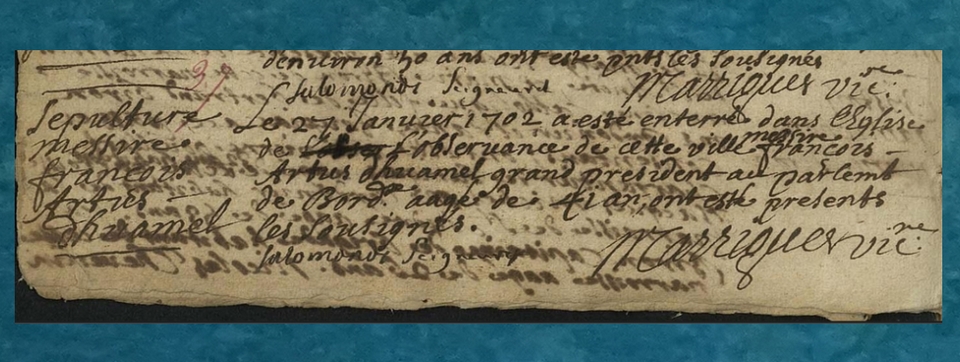 denviron 50 ans ont este pnts les sousignés
Salomondi Seigneurd Marriques vic.re
37
Sepulture
messire
francois
Artus
dhuamel
Le 27 Janvier 1702 a este enterré dans l'Eglise
de l'observance de cette ville messire francois
Artus dhuamel grand president au parlemt
de Bord.x aagé de 41 an, ont esté presents
les sousignés.
Salomondi Seigneurd Marriques vic.re